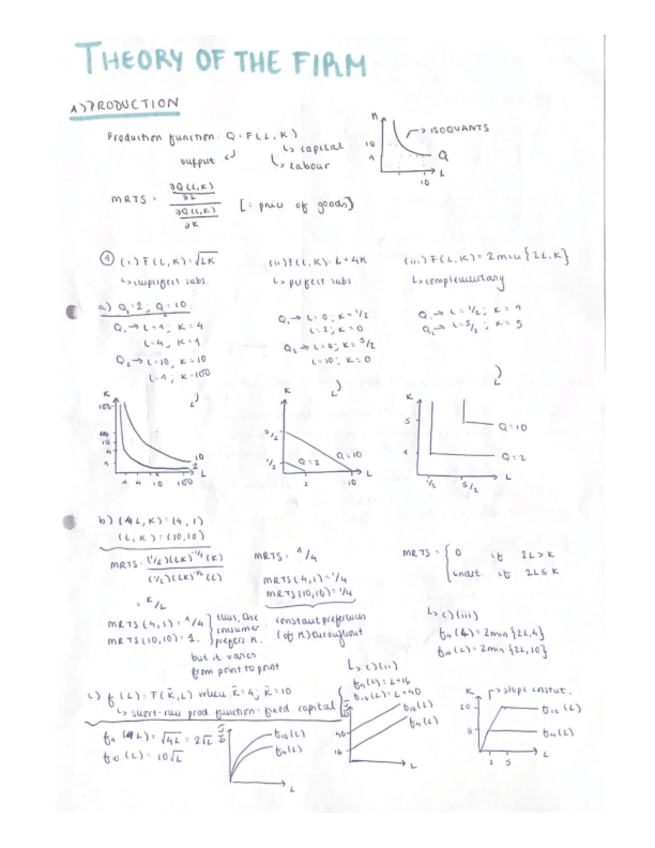 THEORY OF THE FIRM
A) PRODUCTION
Production function: Q = F(L, K)
↳ capital
output ↲
↳ labour
K
→ ISOQUANTS
10
1
Q
L
10
MRTS = ∂Q(L,K)/∂L / ∂Q(L,K)/∂K [= price of goods]
① (i) F(L,K) = √LK
↳ imperfect subs.
(ii) F(L,K) = L + 4K
↳ perfect subs.
(iii) F(L,K) = 2min{2L,K}
↳ complementary
a) Q₁ = 2; Q = 10.
Q₁ → L = 1; K = 4
L = 4, K = 1
Q₂ → L = 10, K = 10
L = 1; K = 100
Q₁ → L = 0; K = 1/2
L = 2; K = 0
Q₂ → L = 0; K = 5/2
L = 10; K = 0
Q₁ → L = 1/2; K = 1
Q₂ → L = 5/2; K = 5
K
100
10
4
1
10
2
L
1 4 10 100
K
5/2
1/2
Q=2
Q=10
L
2 10
K
5
Q=10
1
Q=2
L
1/2 5/2
b) (L,K) = (4,1)
(L,K) = (10,10)
MRTS = (1/2)(LK)^-1/2 (K) / (1/2)(LK)^-1/2 (L)
= K/L
MRTS(4,1) = 1/4
MRTS(10,10) = 1.
thus, the
consumer
prefers K.
but it varies
from point to point
MRTS = 1/4
MRTS(4,1) = 1/4
MRTS(10,10) = 1/4
constant preferences
(of K) throughout
MRTS = { 0 if 2L > K
undet. if 2L ≤ K
↳ c)(iii)
f₄(L) = 2min{2L,4}
f₁₀(L) = 2min{2L,10}
↳ c)(ii)
f₄(L) = L+16
f₁₀(L) = L+40
c) f(L) = F(K̄,L) when K̄ = 4; K̄ = 10
↳ short-run prod function = fixed capital
f₄(L) = √4L = 2√L
f₁₀(L) = 10√L
f₁₀(L)
f₄(L)
L
f₁₀(L)
f₄(L)
40
16
L
K
→ slope
20
8
f₁₀(L)
f₄(L)
2 5
L